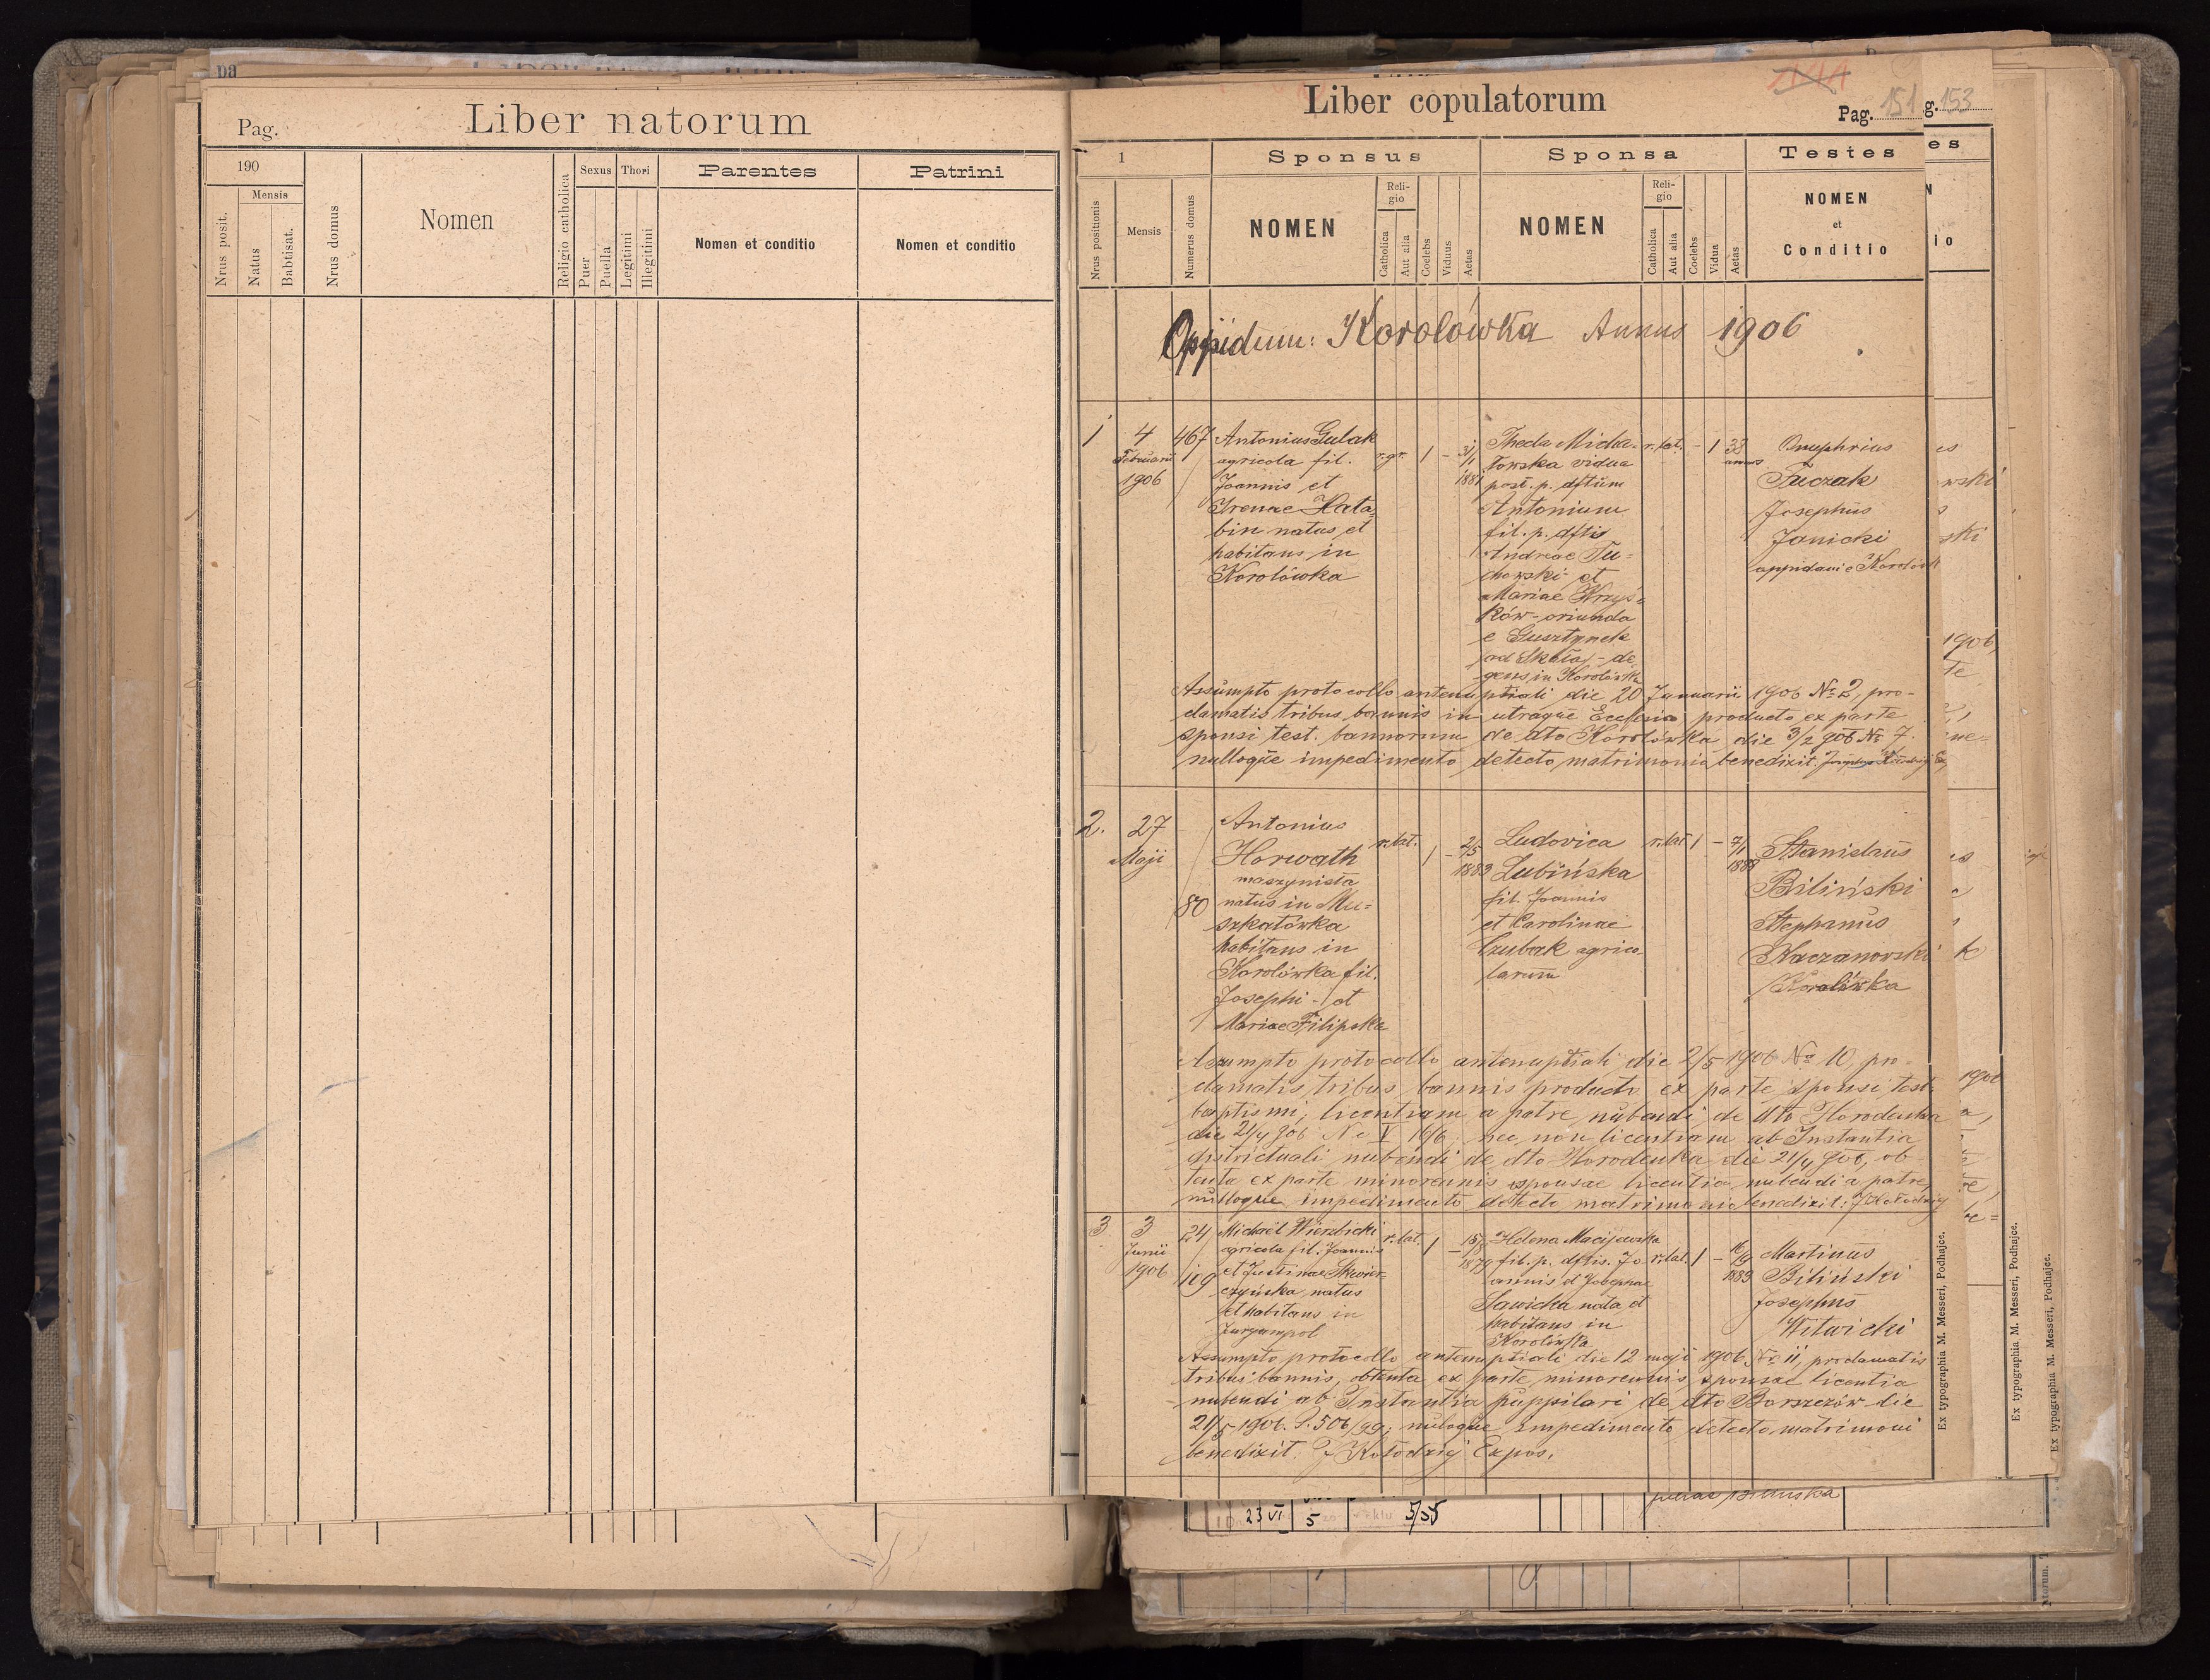 Liber natorum
Pag.
190
Mensis
Nrus posit.
Natus
Babtisat.
Nrus domus
Nomen
Religio catholica
Sexus
Puer
Puella
Thori
Legitimi
Illegitimi
Parentes
Nomen et conditio
Patrini
Nomen et conditio
Liber copulatorum
Pag. 151
g. 153
1
Sponsus
Sponsa
Testes
Nrus positionis
Mensis
Numerus domus
NOMEN
Religio
Catholica
Aut alia
Coelebs
Viduus
Aetas
NOMEN
Religio
Catholica
Aut alia
Coelebs
Vidua
Aetas
NOMEN
et
Conditio
Oppidum: Korolówka Annus 1906
1
4
Februarii
1906
467
Antonius Gulak
agricola fil.
Joannis et
Irenae Hata=
bin natus et
habitans in
Korolówka
r.gr. 1 - 31/1
1881
Thecla Micha-
łowska vidua
post. p. dftum
Antonium
fil. p. dftis
Andreae Tu=
chowski et
Mariae Krzyś=
ków - oriunda
e Gusztynek
ad Skała - de
gens in Korolówka
r.lat. - 1 33
annos
Onuphrius
Fuczak
Josephus
Janicki
oppidani e Korolówk
Assumpto protocollo antenuptiali die 20 Januarii 1906 № 2, pro-
clamatis tribus bannis in utraque Ecclesia producto ex parte
sponsi test. bannorum de dto Korolówka die 3/2 906 № 7.
nulloque impedimento detecto matrimonio benedixit.
2.
27
Maji
80
Antonius
Horwath
maszynista
natus in Mu=
szkatówka
habitans in
Korolówka fil.
Josephi - et
Mariae Filipska
r.lat. 1 - 2/5
1883
Ludovica
Lubińska
fil. Joannis
et Carolinae
Czubak agrico-
larum
r.lat 1 - 7/1
1888
Stanislaus
Biliński
Stephanus
Kaczanowski
Korolówka
Assumpto protocollo antenuptiali die 2/5 1906 № 10 pro-
clamatis tribus bannis producto ex parte sponsi test.
baptismi, licentiam a patre nubendi de dto Horodenka
die 21/4 906 Nc V 16/6, nec non licentiam ab Instantia
districtuali nubendi de dto Horodenka die 21/4 906, ob
tenta ex parte minorennis sponsae licentia nubendi a patre
nulloque impedimento detecto matrimonio benedixit: J Kołodziej
3
3
Junii
1906
24
109
Michaël Wierzbicki
agricola fil. Joannis
et Justinae Skwier
czyńska natus
et habitans in
Juryampol
r.lat. 1 - 15/8
1879
Helena Macijewska
fil. p. dftis. Jo
annis et Josephae
Sawicka nata et
habitans in
Korolówka
r.lat. 1 - 16/9
1883
Martinus
Biliński
Josephus
Witwicki
Assumpto protocollo antenuptiali die 12 maji 1906 № 11, proclamatis
tribus bannis, obtenta ex parte minorennis sponsae licentia
nubendi ab Instantia puppilari de dto Borszczów die
21/5 1906. P. 506/99; nuloque impedimento detecto matrimoni
benedixit. J Kołodziej Expos.
Ex typographia M. Messeri, Podhajce.
Ex typographia M. Messeri, Podhajce.
Ex typographia M. Messeri, Podhajce.
23 VI 5 5/55